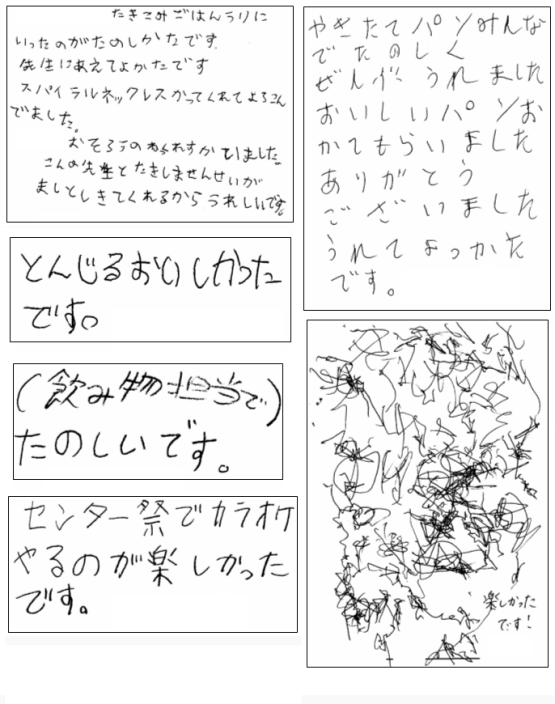 たきこみごはんうりに
いったのがたのしかたです。
先生にあえてよかたです
スパイラルネックレスかってくれてよろこん
でました。
おそろヶの
していました。
こんの先生とたきしませんせいが
ましとしきてくれるからうれしいです。
とんじるおいしかった
です。
(飲み物担当で)
たのしいです。
センター祭でカラオケ
やるのが楽しかった
です。
やきたてパンみんな
でたのしく
ぜんぶうれました
おいしいパンお
かてもらいました
ありがとう
ございました
うれてよっかた
です。
楽しかった
です!